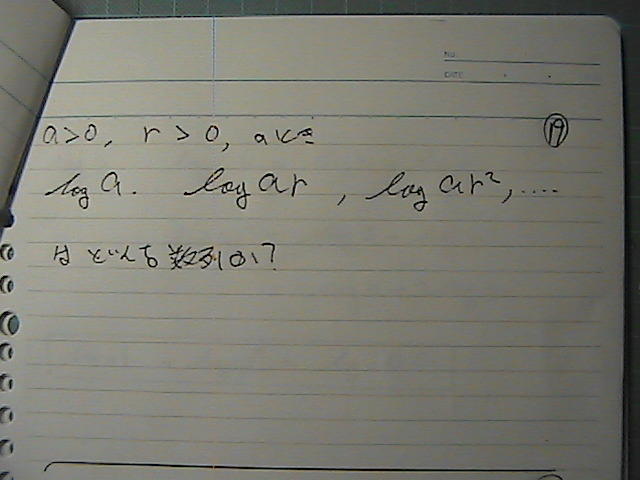 NO.
DATE
a>0, r>0, aのとき
⑲
log a. log ar, log ar², ....
はどんな数列か?